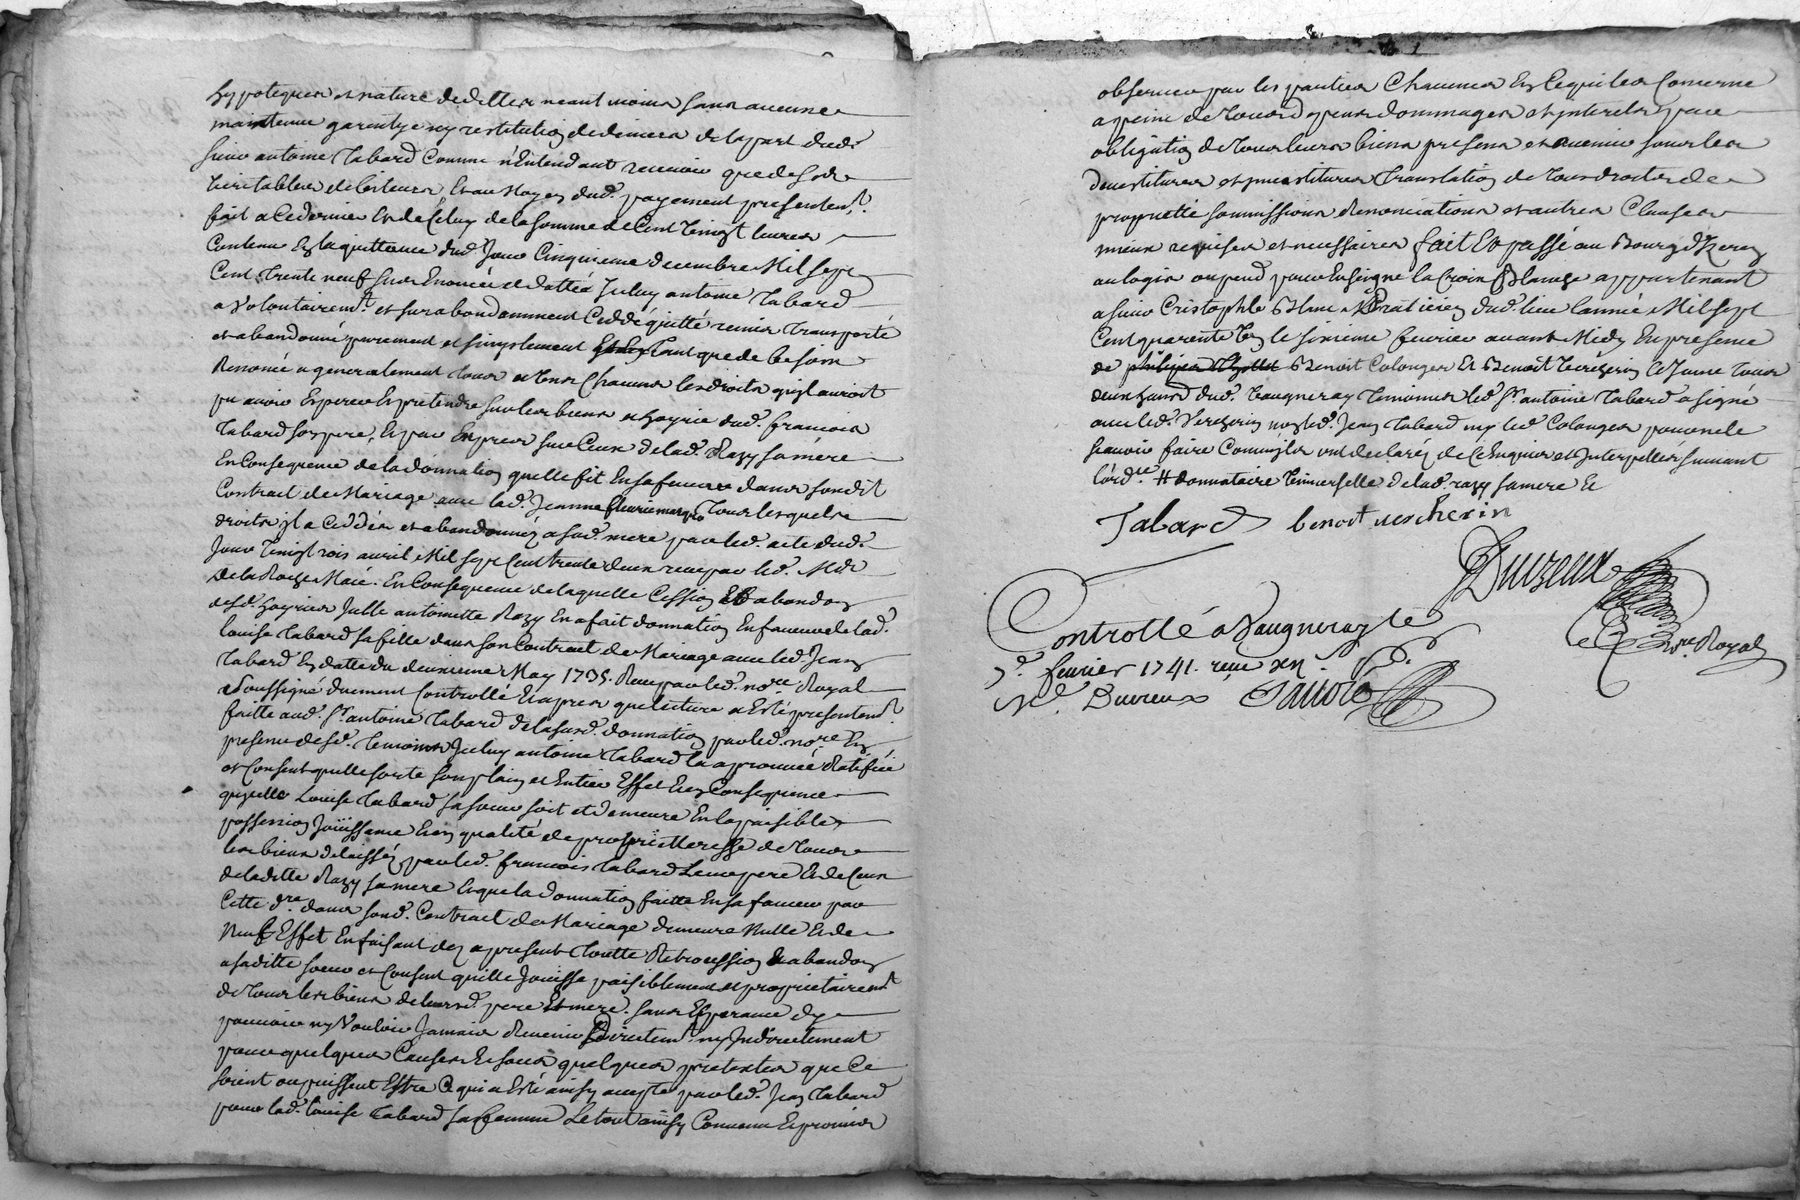 hypoteques et nature de dettes neant moins sans aucune
maintenue garentye ny restitution de deniers de la part dud.
sieur antoine Tabard Comme n'Entendant recevoir que de ses
veritables debiteurs Et au moyen dud. payement presentem.t
fait a ce dernier Et de Celuy de la somme de Cent vingt livres
Contenu En la quittance dud Jour Cinquieme decembre Mil sept
Cent trente neuf sus Enoncée et dattée Jceluy antoine Tabard
a volontairem.t et surabondamment Ceddé quitté remis transporté
et abandonné purement et simplement tant que de besoin
Renoncé a generalement tous et uns Chacuns les droits qu'jl auroit
pu avoir Esperer Et pretendre sur les biens et hoyrie dud. francois
Tabard son pere, Et par Expres sur Ceux de lad. Razy sa mére
En Consequence de la donnation quelle fit En sa faveur dans son dit
Contract de Mariage avec lad. Jeanne fleurie marque Tous lesquels
droits jl a Ceddés et abandonnéz a sad. mere par led. acte dud.
Jour vingt trois avril Mil sept Cent trente deux receu par led. Me
de la Roche Macé. En Consequence de laquelle Cession Et abandon
desd. hoyries Jcelle antoinette Razy En a fait donnation En faveur de lad.
louise Tabard sa fille dans son Contract de Mariage avec led Jean
Tabard En datte du deuxieme May 1735. Receu par led. no.re Royal
Soussigné duement Controllé Et apres que lecture a Esté presentem.t
faitte aud. S.r antoine Tabard de la susd. donnation par led. no.re En
presence desd. temoins Jceluy antoine Tabard la aprouvée Ratifiée
et Consent quelle sorte son plain et Entier Effet Et en Consequence
qu'jcelle Louise Tabard sa soeur soit et demeure En la paisible
possession Joüissance Et en qualité de proprietteresse de tous
les biens delaissés par led. francois Tabard Leur pere Et de Ceux
de laditte Razy sa mere Et que la donnation faitte En sa faveur par
Cette d.re dans sond. Contract de Mariage demeure Nulle Et de
Nuls Effet En faisant dez a present toutte Retrocession Et abandon
a saditte soeur et Consent qu'elle Joüisse paisiblement et proprietairem.t
de tous les biens de leursd. pere Et mere. sans Esperance dy
pouvoir ny vouloir Jamais Revenir Directem.t ny Indirectement
pour quelques Causes Et sous quelques pretextes que Ce
soient ou puissent Estre Ce qui a Esté ainsy accepté par led. Jean Tabard
pour lad. louise Tabard sa femme Le tout ainsy Convenu Et promis
observer par les parties Chacunes En Ce qui les Concerne
a peine de tous depens dommages et jnterets par
obligation de tous leurs biens presens et avenir sous les
devestitures et jnvestitures translation de tous droits de
proprietté soumissions Renonciations et autres Clauses
mieux requises et necessaires fait Et passé au Bourg d'Yzeron
au logis ou pend pour Enseigne la Croix Blanche appartenant
a sieur Cristophle Blanc Praticien dud. lieu l'année Mil sept
Cent quarente un le sixieme fevrier avant Midy En presence
de Benoit Colonges Et Benoit Vercherin le Jeune tous
deux dud. Vaugneray temoins led. S.r antoine Tabard a signé
avec led. Vercherin non led. Jean Tabard ny led Colonges pour ne le
scavoir faire Comme jls ont declaréz de Ce Enquis et Interpellés suivant
l'ord.ce # donnataire universelle de lad. razy sa mere Et
Tabard benoit vercherin
Duvreux
No.re Royal
Controllé a Vaugneray le
7.e fevrier 1741. receu
M.e Duvreux